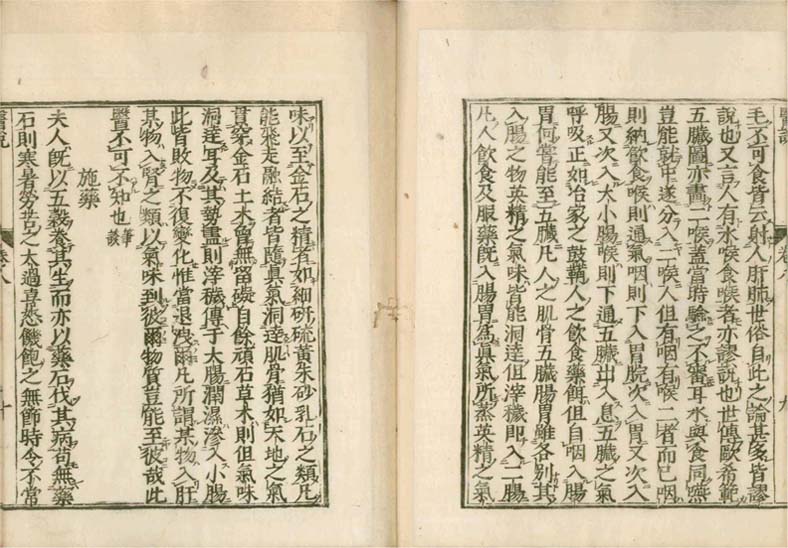 醫說
卷八
九
毛不可食皆云射人肝肺世俗自此之論甚多皆謬
說也又言人有水喉食喉者亦謬說也世傳歐希範
五臟圖亦畫二喉蓋當時驗之不審耳水與食同嚥
豈能就中遂分入二喉人但有咽有喉二者而已咽
則納飲食喉則通氣咽則下入胃脘次入胃又次入
腸又次入大小腸喉則下通五臟出入息五臟之氣
呼吸正如冶家之鼓鞴人之飲食藥餌但自咽入腸
胃何嘗能至五臟凡人之肌骨五臟腸胃雖各別其
入腸之物英精之氣味皆能洞達但滓穢即入二腸
凡人飲食及服藥既入腸胃爲眞氣所蒸英精之氣
味以至金石之精者如細研硫黃朱砂乳石之類凡
能飛走融結者皆隨眞氣洞達肌骨猶如天地之氣
貫穿金石土木曾無留礙自餘頑石草木則但氣味
洞達耳及其勢盡則滓穢傳于大腸潤濕滲入小腸
此皆敗物不復變化惟當退洩爾凡所謂某物入肝
某物入腎之類以氣味到彼爾物質豈能至彼哉此
醫不可不知也筆談
施藥
夫人既以五穀養其生而亦以藥石伐其病苟無藥
石則寒暑勞苦之太過喜怒饑飽之無節時令不常
醫說
卷八
十